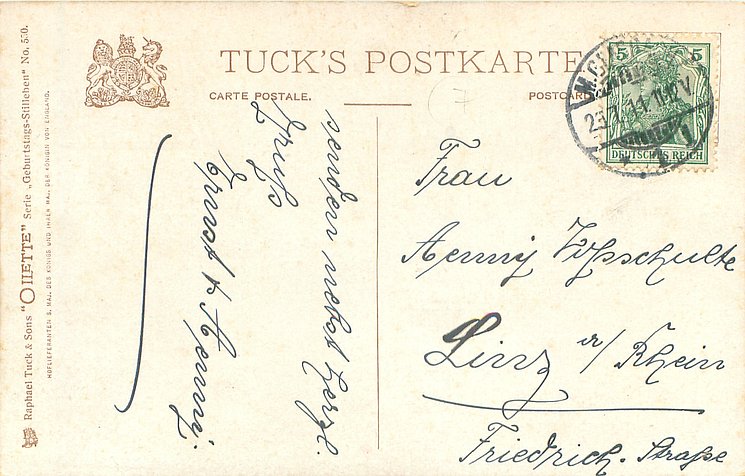 TUCK'S POSTKARTE
CARTE POSTALE.
POSTCARD
Raphael Tuck & Sons "OILETTE" Serie „Geburtstags-Stilleben" No. 530.
HOFLIEFERANTEN S. MAJ. DES KÖNIGS UND IHRER MAJ. DER KÖNIGIN VON ENGLAND.
senden nebst herzl.
Gruß
Ernst & Aenny.
5 5
DEUTSCHES REICH
M.GLADBACH
Frau
Aenny Voßschulte
Linz a/Rhein
Friedrich-Straße
7